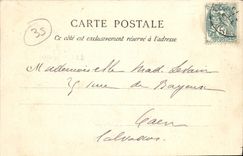 CARTE POSTALE
Ce côté est exclusivement réservé à l'adresse
35
Mademoiselle Mad.
rue de Bayeux
Caen
Calvados